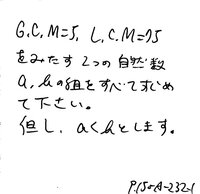 G.C.M=5, L.C.M=75
をみたす 2つの自然数
a, bの組をすべてもとめ
て下さい。
但し、a<bとします。
P150A-232-1